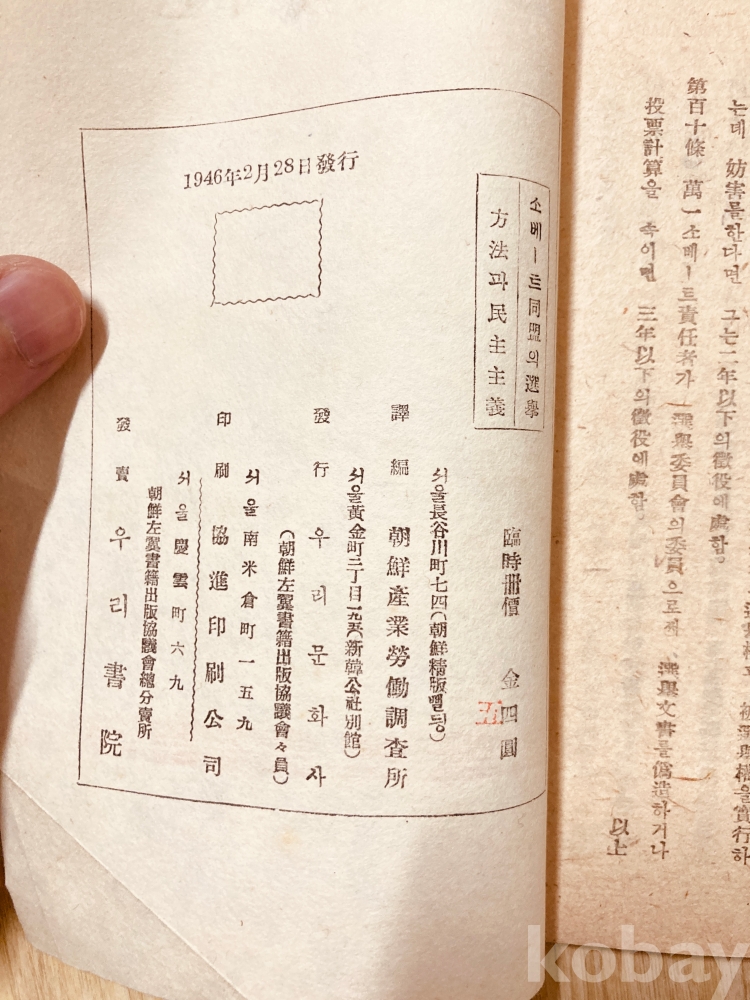 는데 妨害를한다면 그는二年以下의徵役에處함
第百十條 萬一소베ㅣ트責任者가 選擧委員會의委員으로써、選擧文書를僞造하거나
投票計算을 속이면 三年以下의徵役에處함
被選擧權을實行하
以上
소베ㅣ트同盟의選擧
方法과民主主義
1946年2月28日發行
臨時冊價 金四圓
五
서울長谷川町七四(朝鮮精版삘딍)
譯編 朝鮮產業勞働調査所
서울黃金町二丁目一九五(新韓公社別館)
發行 우리문화사
(朝鮮左翼書籍出版協議會々員)
서울南米倉町一五九
印刷 協進印刷公司
서울慶雲町六九
朝鮮左翼書籍出版協議會總分賣所
發賣 우리書院
kobay